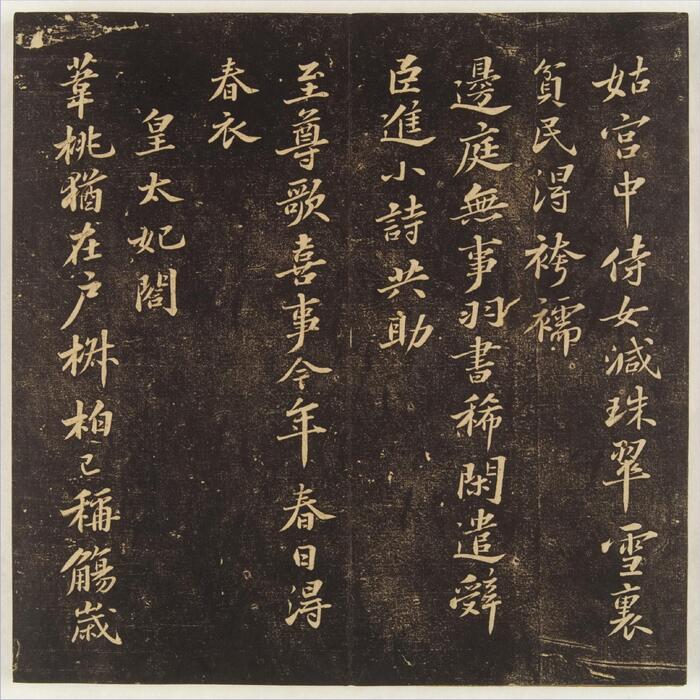 姑宫中侍女减珠翠雪裏
貧民得袴襦
邊庭無事羽書稀閑遣辭
臣進小詩共助
至尊歌喜事今年春日得
春衣
皇太妃閤
葦桃猶在户椒柏已稱觴歲